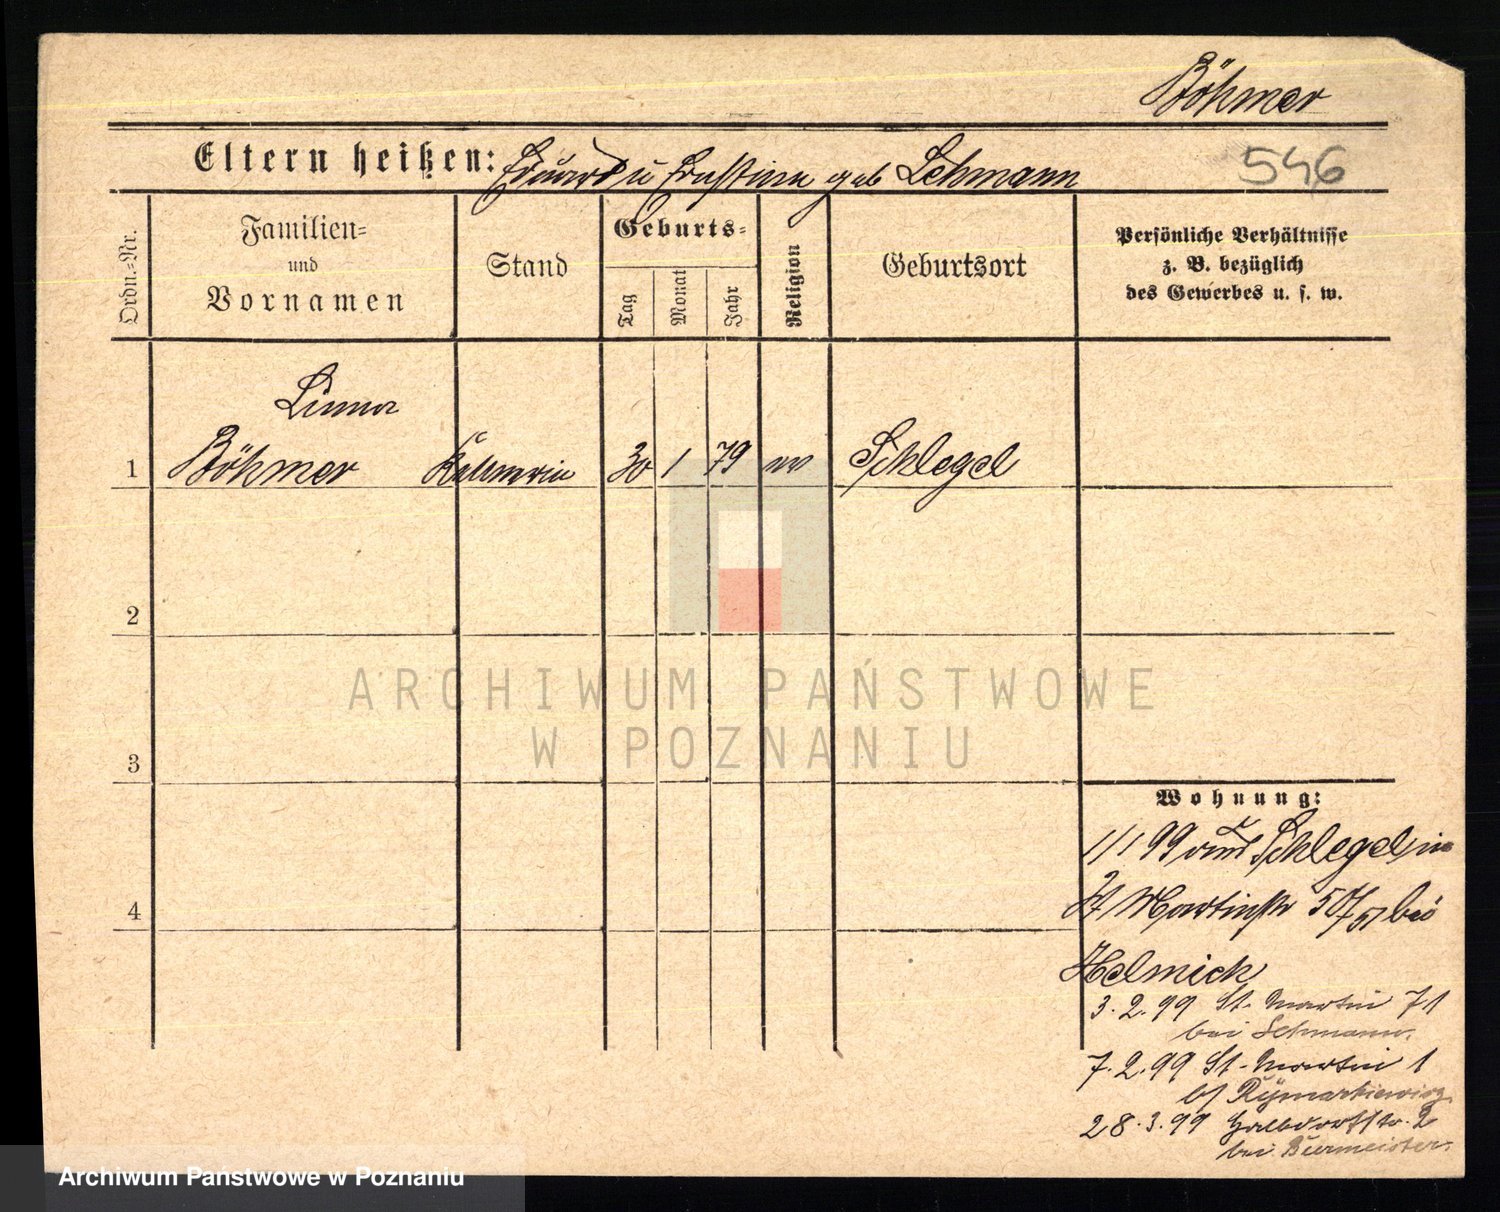 Böhmer
Eltern heißen: Eduard u Ernstine geb Lehmann
546
Ordn.=Nr.
Familien=
und
Vornamen
Stand
Geburts=
Tag
Monat
Jahr
Religion
Geburtsort
Persönliche Verhältnisse
z. B. bezüglich
des Gewerbes u. s. w.
1
Böhmer
30 1 79
Schlegel
2
3
4
ARCHIWUM PAŃSTWOWE
W POZNANIU
Wohnung:
1/1 99 aus Schlegel in
St Martinstr 50/51 bei
Helmich
3.2.99 St. Martin 71
bei Lehmann.
7.2.99 St. Martin 1
bei
28.3.99 Halbdorfstr. 2
bei Burmeister.
Archiwum Państwowe w Poznaniu